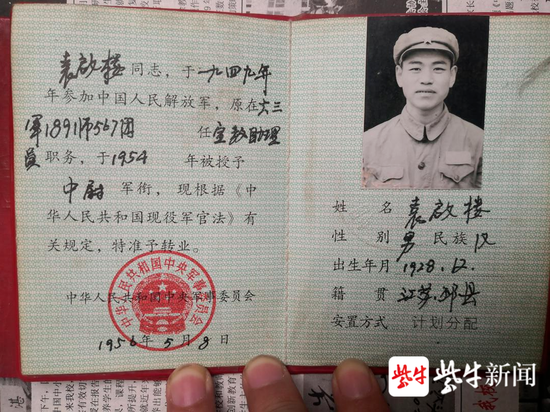 袁啟楼同志，于一九四九年
年参加中国人民解放军，原在六三
军189师567团 任宣教助理
员 职务，于1954 年被授予
中尉 军衔，现根据《中
华人民共和国现役军官法》有
关规定，特准予转业。
中华人民共和国中央军事委员会
1956年5月8日
中华人民共和国中央军事委员会
姓 名 袁啟楼
性 别 男 民族 汉
出生年月 1928.12.
籍 贯 江苏邳县
安置方式 计划分配
紫牛 紫牛新闻